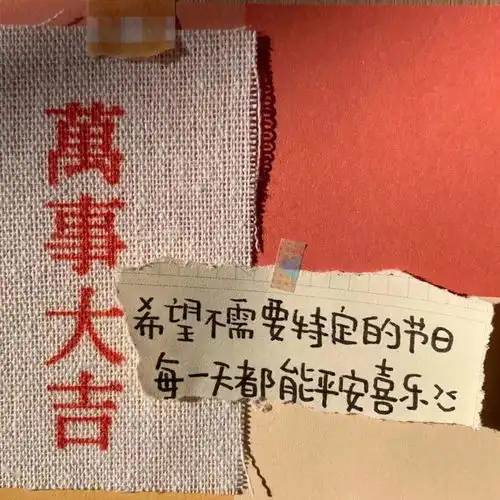 萬事大吉
希望不需要特定的节日
每一天都能平安喜乐